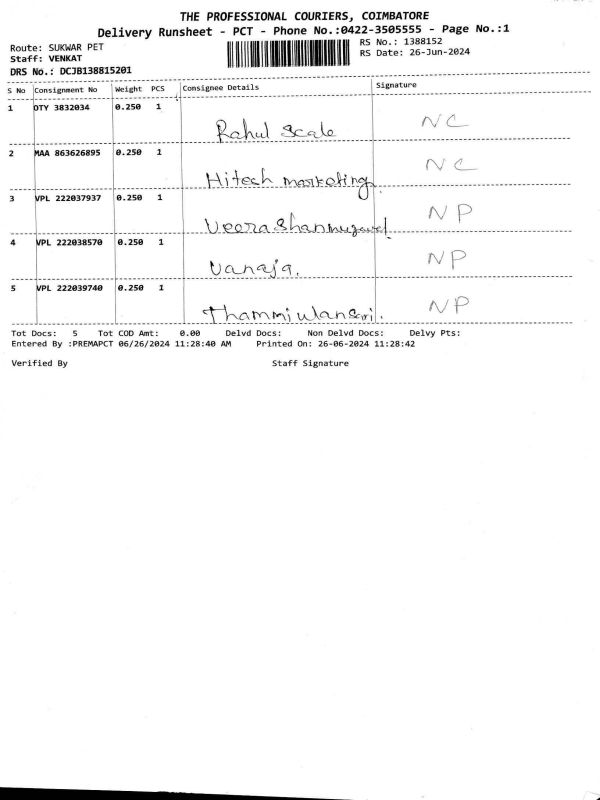 THE PROFESSIONAL COURIERS, COIMBATORE
Delivery Runsheet - PCT - Phone No.:0422-3505555 - Page No.:1
Route: SUKWAR PET RS No.: 1388152
Staff: VENKAT RS Date: 26-Jun-2024
DRS No.: DCJB138815201
S No Consignment No Weight PCS Consignee Details Signature
1 OTY 3832034 0.250 1 NC
Rahul Scale
2 MAA 863626895 0.250 1 NC
Hitech marketing
3 VPL 222037937 0.250 1 NP
Veerashanmugavel
4 VPL 222038570 0.250 1 NP
Vanaja.
5 VPL 222039740 0.250 1 NP
Tot Docs: 5 Tot COD Amt: 0.00 Delvd Docs: Non Delvd Docs: Delvy Pts:
Entered By :PREMAPCT 06/26/2024 11:28:40 AM Printed On: 26-06-2024 11:28:42
Verified By Staff Signature